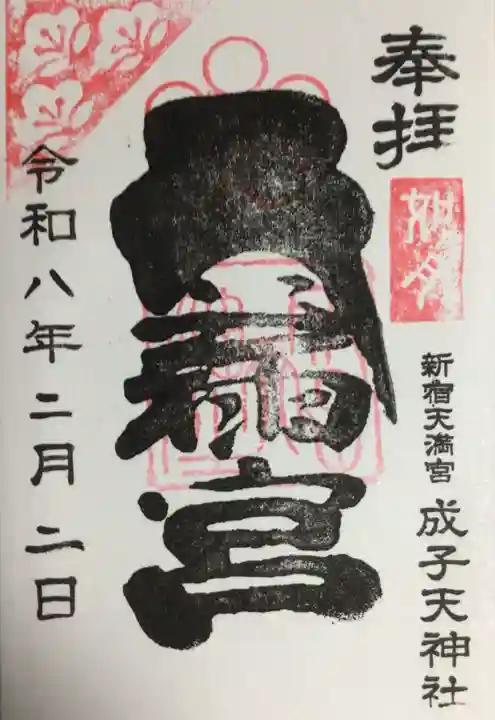 奉拝
新宿天満宮 成子天神社
宮
令和八年二月二日